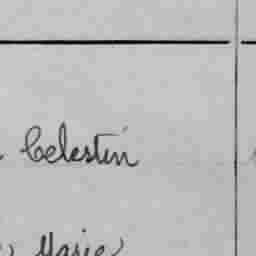 Celestin
Marie